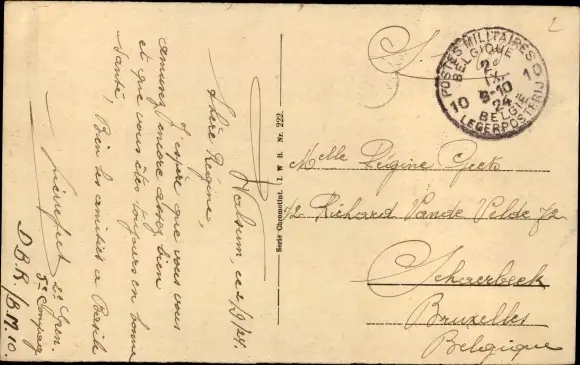 Walsum, ce 2/9/24.
Chère Régine,
J'espère que vous vous
amusez encore assez bien
et que vous êtes toujours en bonne
santé, Bien des amitiés à
2e Gren.
5e Compag
D.B.K/B.M.10.
Serie Chromotint. I. W. B. Nr. 222.
S.M.
POSTES MILITAIRES
BELGIQUE
2
IX
9-10
24
10 10
BELGIË
LEGERPOSTERIJ
Melle Régine Geets
72 Richard Vande Velde 72
Schaerbeek
Bruxelles
Belgique
2